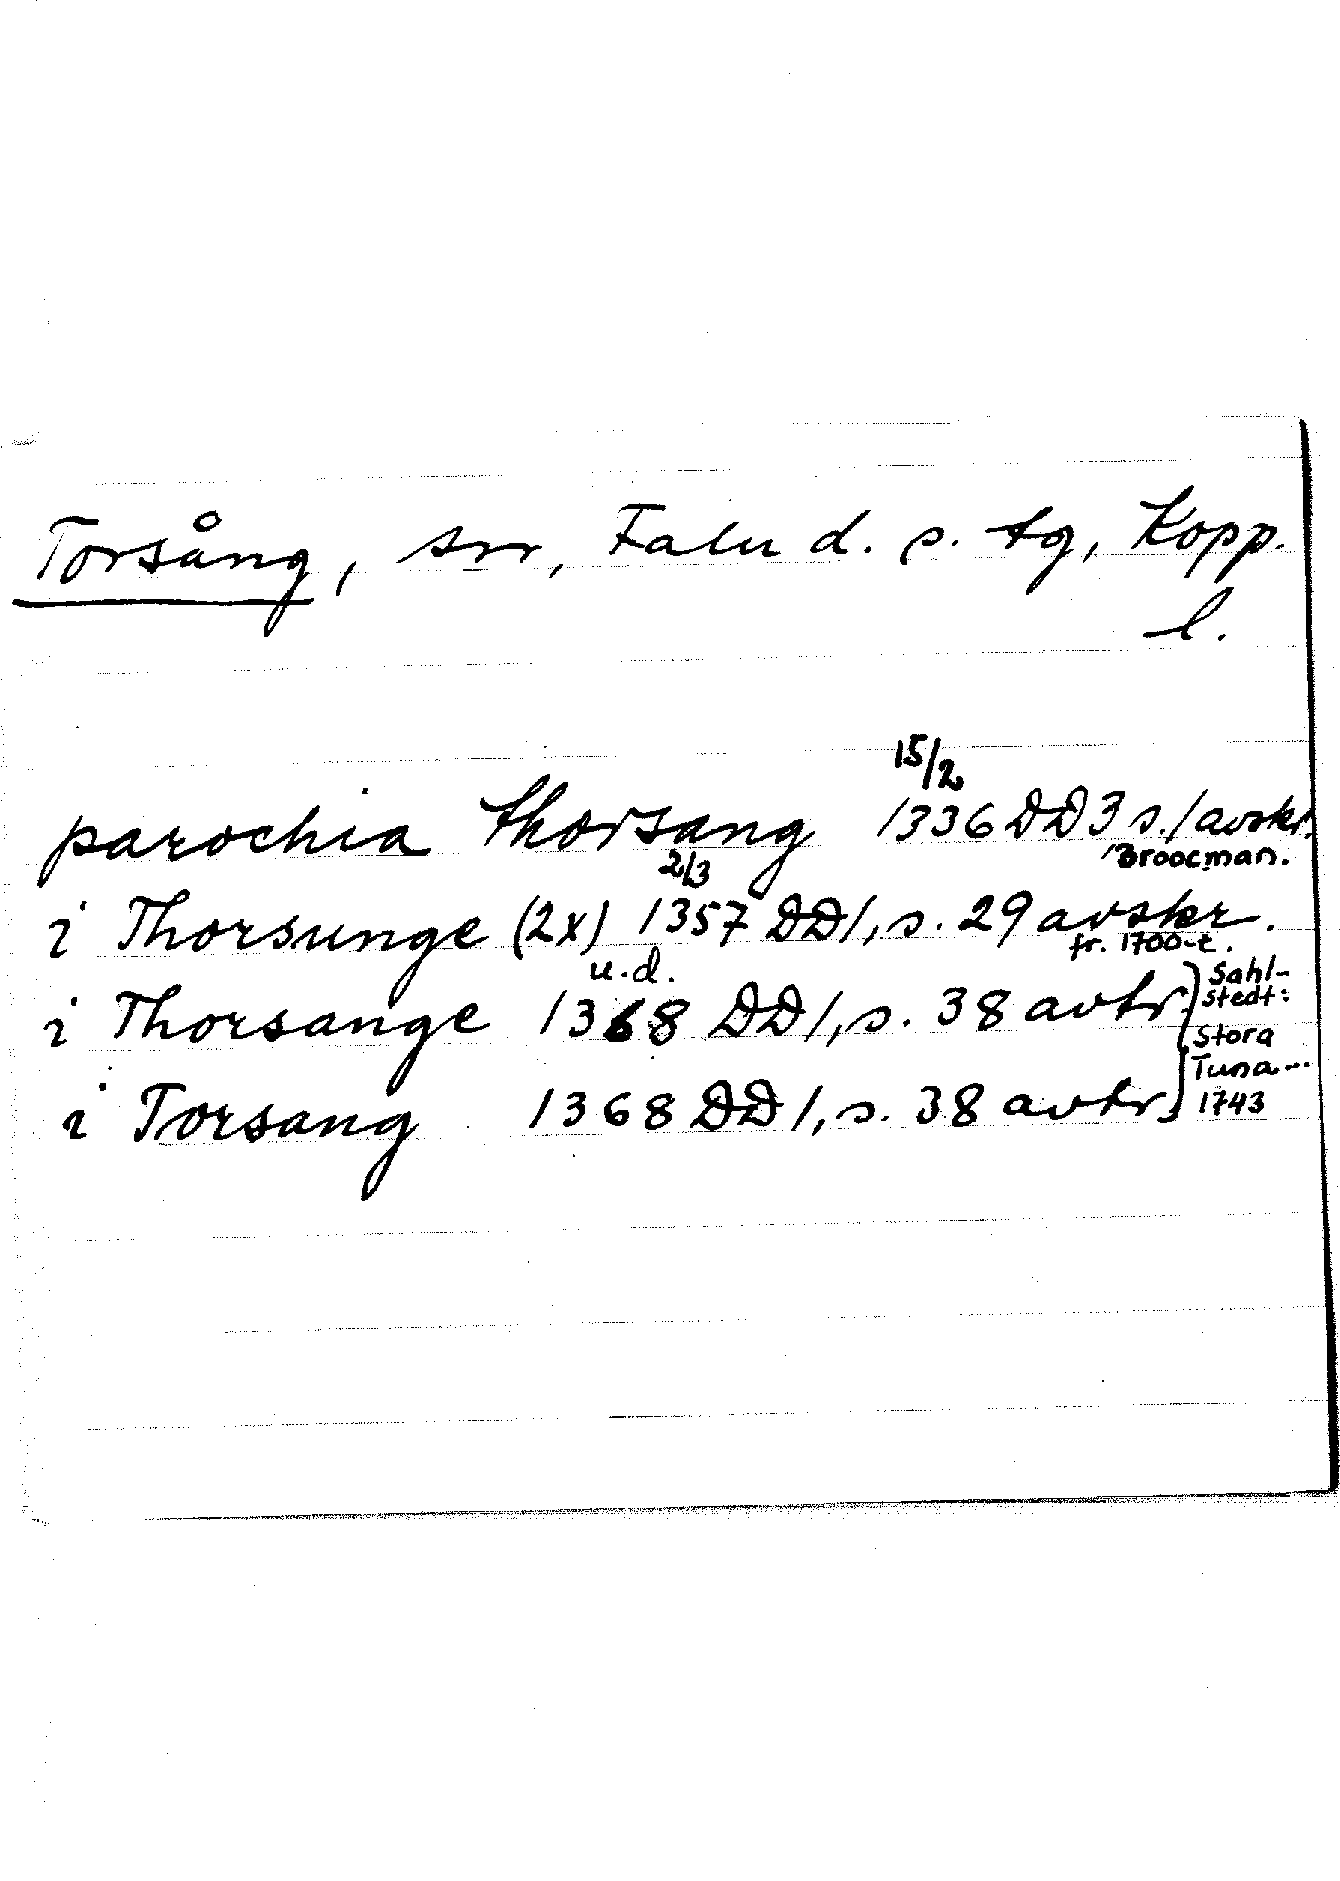 Torsång, sn, Falu d. s. tg, Kopp.
l.
15/2
parochia thorsang 1336 DD 3 s. 1 avskr.
Broocman.
2/3
i Thorsunge (2x) 1357 DD 1, s. 29 avskr.
fr. 1700-t.
u.d.
i Thorsange 1368 DD 1, s. 38 avtr.
i Torsang 1368 DD 1, s. 38 avtr.
Sahl-
stedt:
Stora
Tuna...
1743